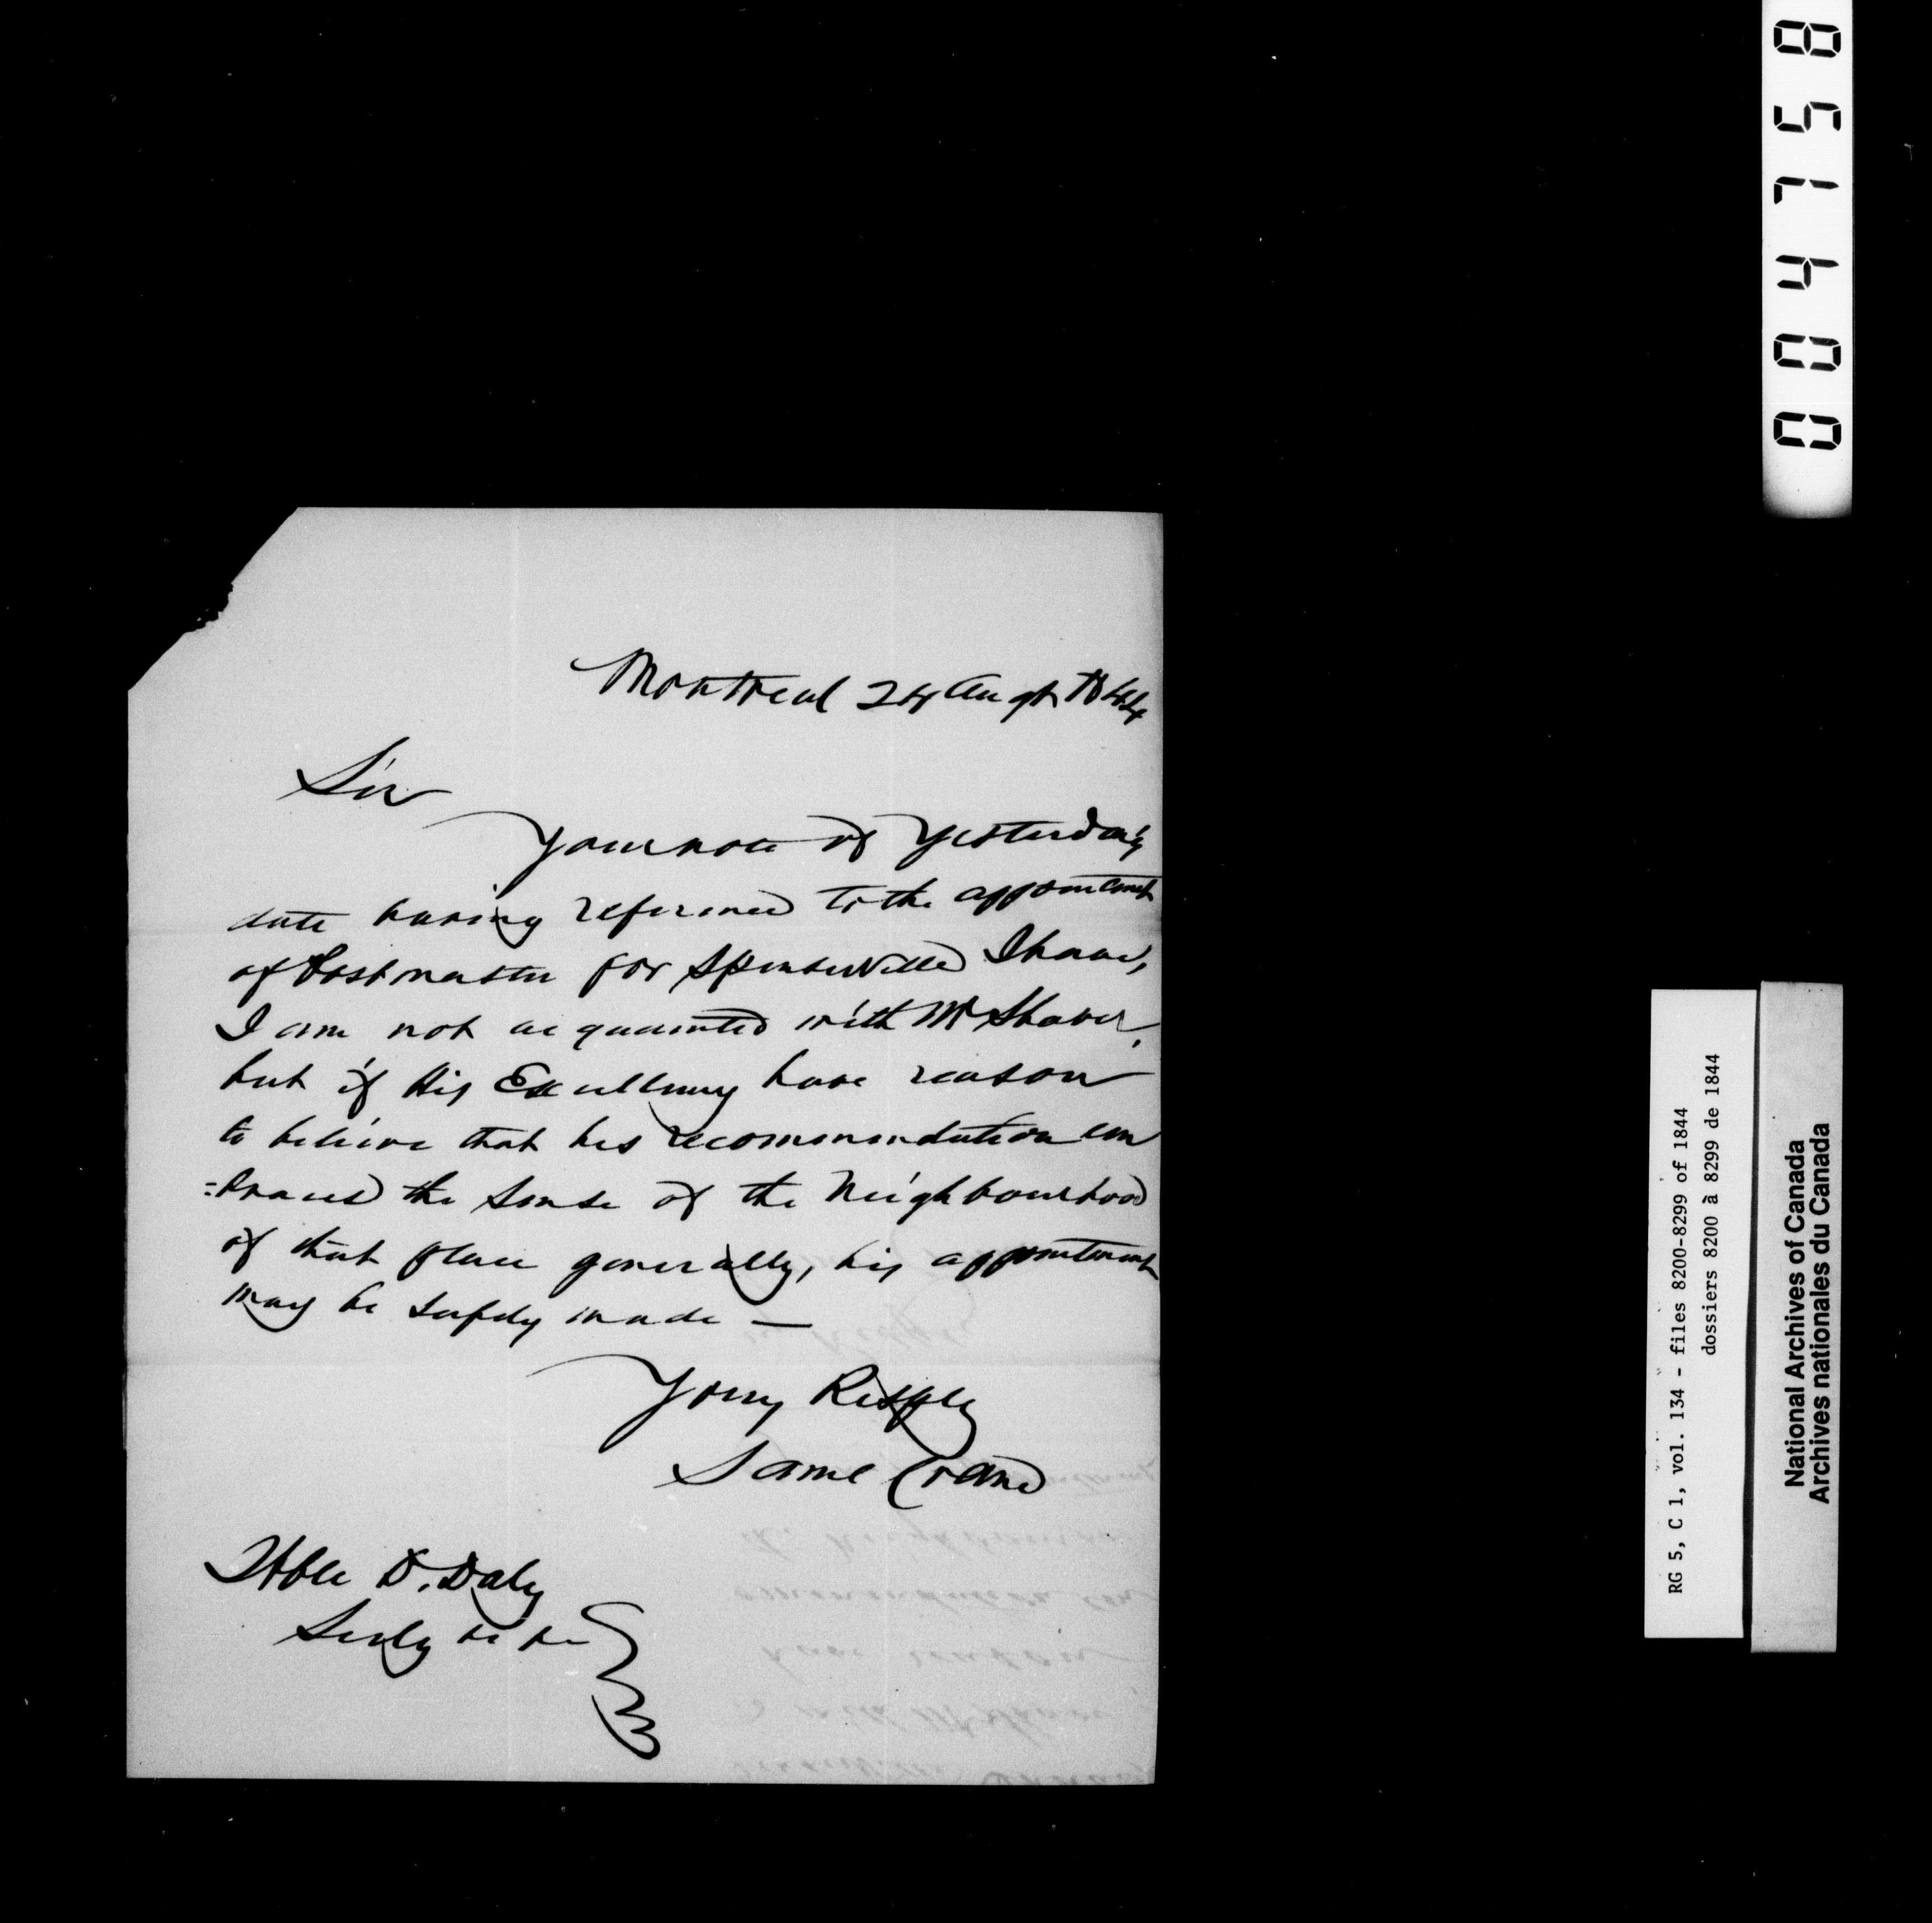 Montreal 24 Augt 1844
Sir
Your note of Yesterday's
date having reference to the appointment
of Postmaster for Spencerville I have,
I am not acquainted with Mr Shaver,
but if His Excellency have reason
to believe that his recommendation em
=braced the sense of the Neighbourhood
of that place generally, his appointment
may be safely made —
Yours Respy
Saml Crane
Hble D. Daly
Secty
857400
RG 5, C 1, vol. 134 - files 8200-8299 of 1844
dossiers 8200 à 8299 de 1844
National Archives of Canada
Archives nationales du Canada